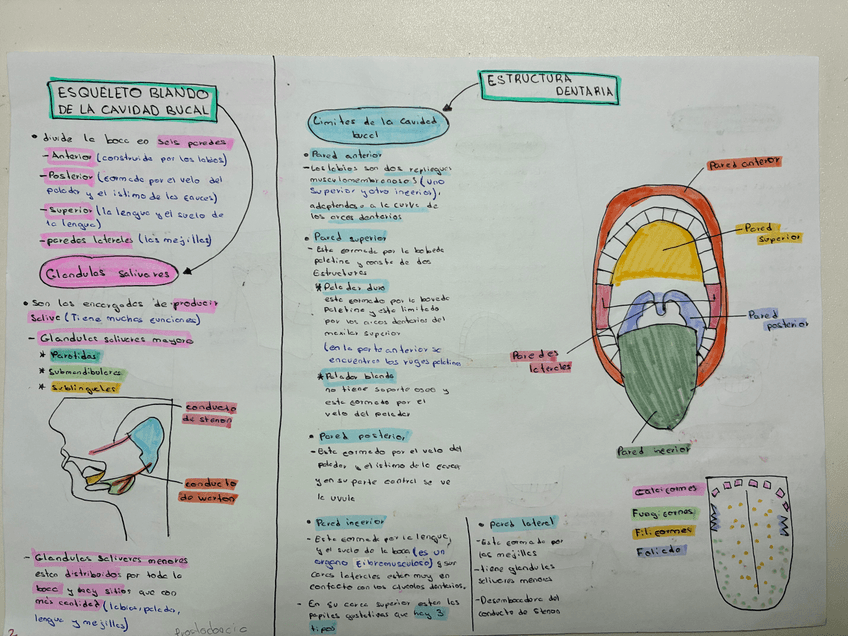 ESQUELETO BLANDO
DE LA CAVIDAD BUCAL
• divide la boca en seis paredes
- Anterior (construida por los labios)
- Posterior (formada por el velo del
paladar y el istimo de las fauces)
- Superior (la lengua y el suelo de
la lengua)
- paredes laterales (las mejillas)
Glandulas salivares
• Son las encargadas de producir
Saliva (Tiene muchas funciones)
- Glandulas salivares mayore
* Parotidas
* Submandibulares
* Sublinguales
conducto
de stenon
conducto
de warton
- Glandulas Salivares menores
estan distribuidas por toda la
boca y hay sitios que con
más cantidad (labios, paladar,
lengua y mejillas)
Prostodoncia
ESTRUCTURA
DENTARIA
Limites de la cavidad
bucal
• Pared anterior
- Los labios son dos repliegues
musculomembranosos (uno
Superior y otro inferior),
adaptandose a la curva de
los arcos dentarios
• Pared superior
- Esta formada por la boveda
palatina y consta de dos
Estructuras
* Paladar duro
esta formado por la boveda
Palatina y esta limitado
por los arcos dentarios del
maxilar superior
(en la parte anterior se
encuentran las rugas palatinas
* Paladar blando
no tiene soporte oseo y
esta formado por el
velo del paladar
• Pared posterior
- Esta formada por el velo del
paladar y el istimo de la fauces
y en su parte central se ve
la uvula
• Pared inferior
- Esta formada por la lengua,
y el suelo de la boca (es un
organo Fibromusculoso) y sus
caras laterales estan muy en
contacto con los alveolos dentarios.
- En su cara superior estan las
papilas gustativas que hay 3
tipos
• pared lateral
- Esta formada por
las mejillas
- tiene glandulas
salivares menores
- Desembocadura del
conducto de Stenon
Pared anterior
Pared
superior
Pared
posterior
Paredes
laterales
Pared inferior
Calciformes
Fungiformes
Filiformes
Foliada